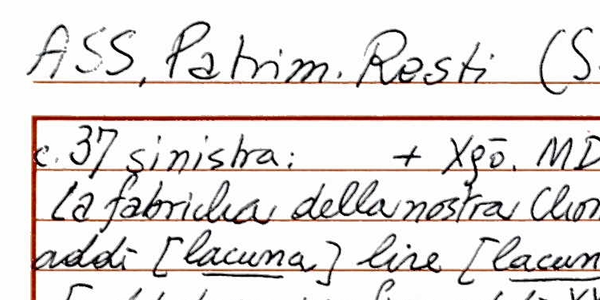 ASS, Patrim. Resti (S
c. 37 sinistra: + Xgō. MD
La fabricha della nostra Chom
addi [lacuna] lire [lacun